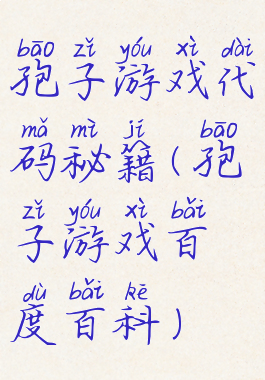 bāo zǐ yóu xì dài
孢子游戏代
mǎ mì jí bāo
码秘籍(孢
zǐ yóu xì bǎi
子游戏百
dù bǎi kē
度百科)